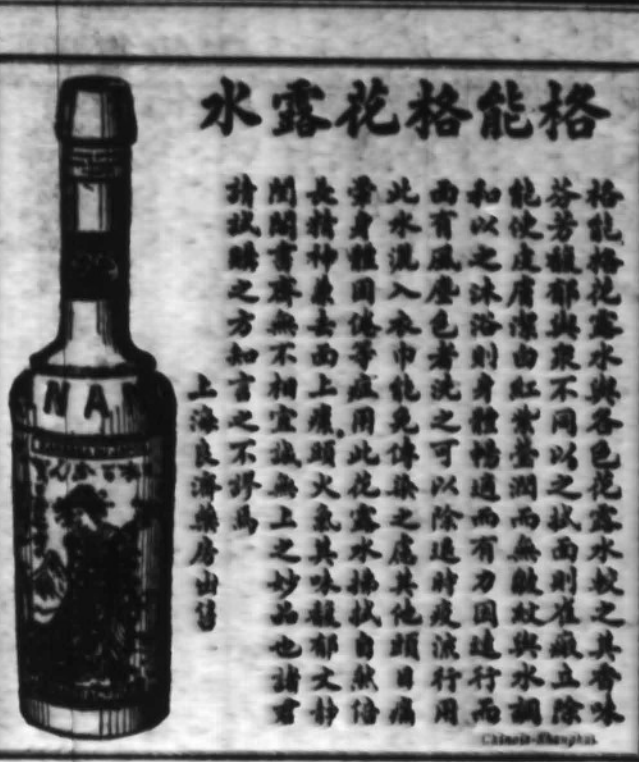 格能格花露水
格能格花露水與各色花露水較之其香味
芬芳馥郁與衆不同以之拭面則雀癍立除
能使皮膚潔白紅紫瑩潤而無皺紋與水調
和以之沐浴則身體暢適而有力因遠行而
面有風塵色者洗之可以除遠時疫流行用
此水混入衣巾能免傳染之虞其他頭目痛
暈身體困倦等症用此花露水拂拭自然倍
長精神兼去面上癀頭火氣其味馥郁文靜
閨閣書齋無不相宜誠無上之妙品也諸君
請試購之方知言之不謬焉
上海良濟藥房出售
NAN
Chinois-Shanghai